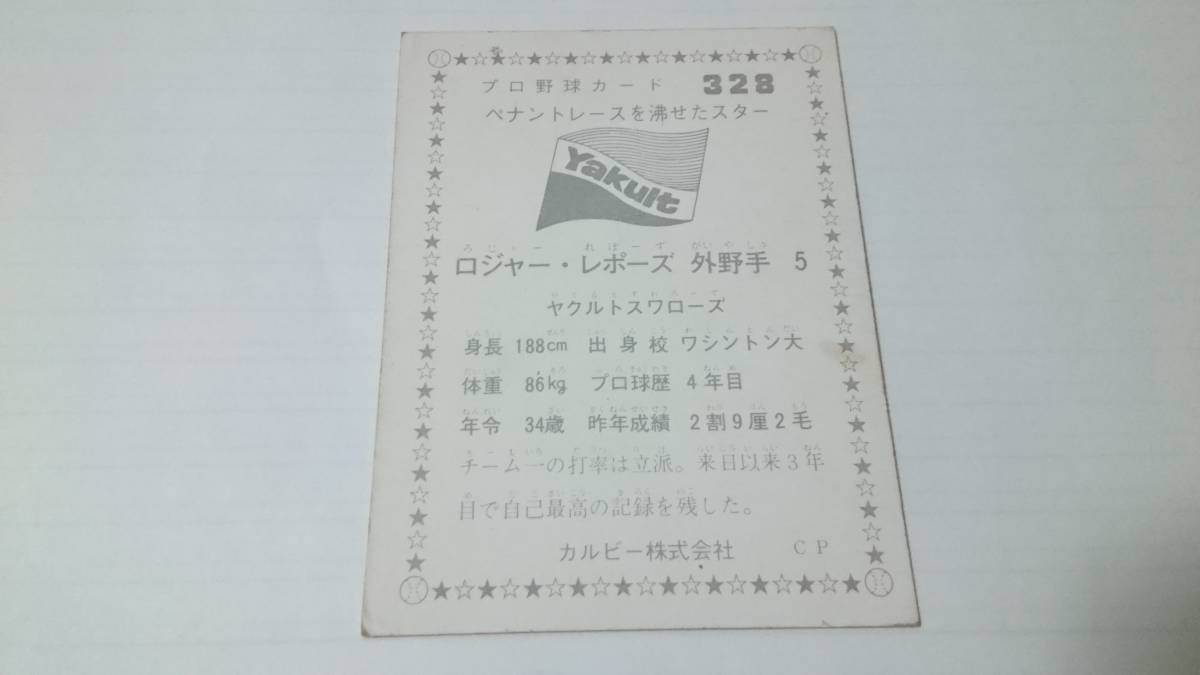 プロ野球カード 328
ペナントレースを沸せたスター
Yakult
ロジャー・レポーズ 外野手 5
ヤクルトスワローズ
身長 188cm 出身校 ワシントン大
体重 86kg プロ球歴 4年目
年令 34歳 昨年成績 2割9厘2毛
チーム一の打率は立派。来日以来3年
目で自己最高の記録を残した。
カルビー株式会社 CP